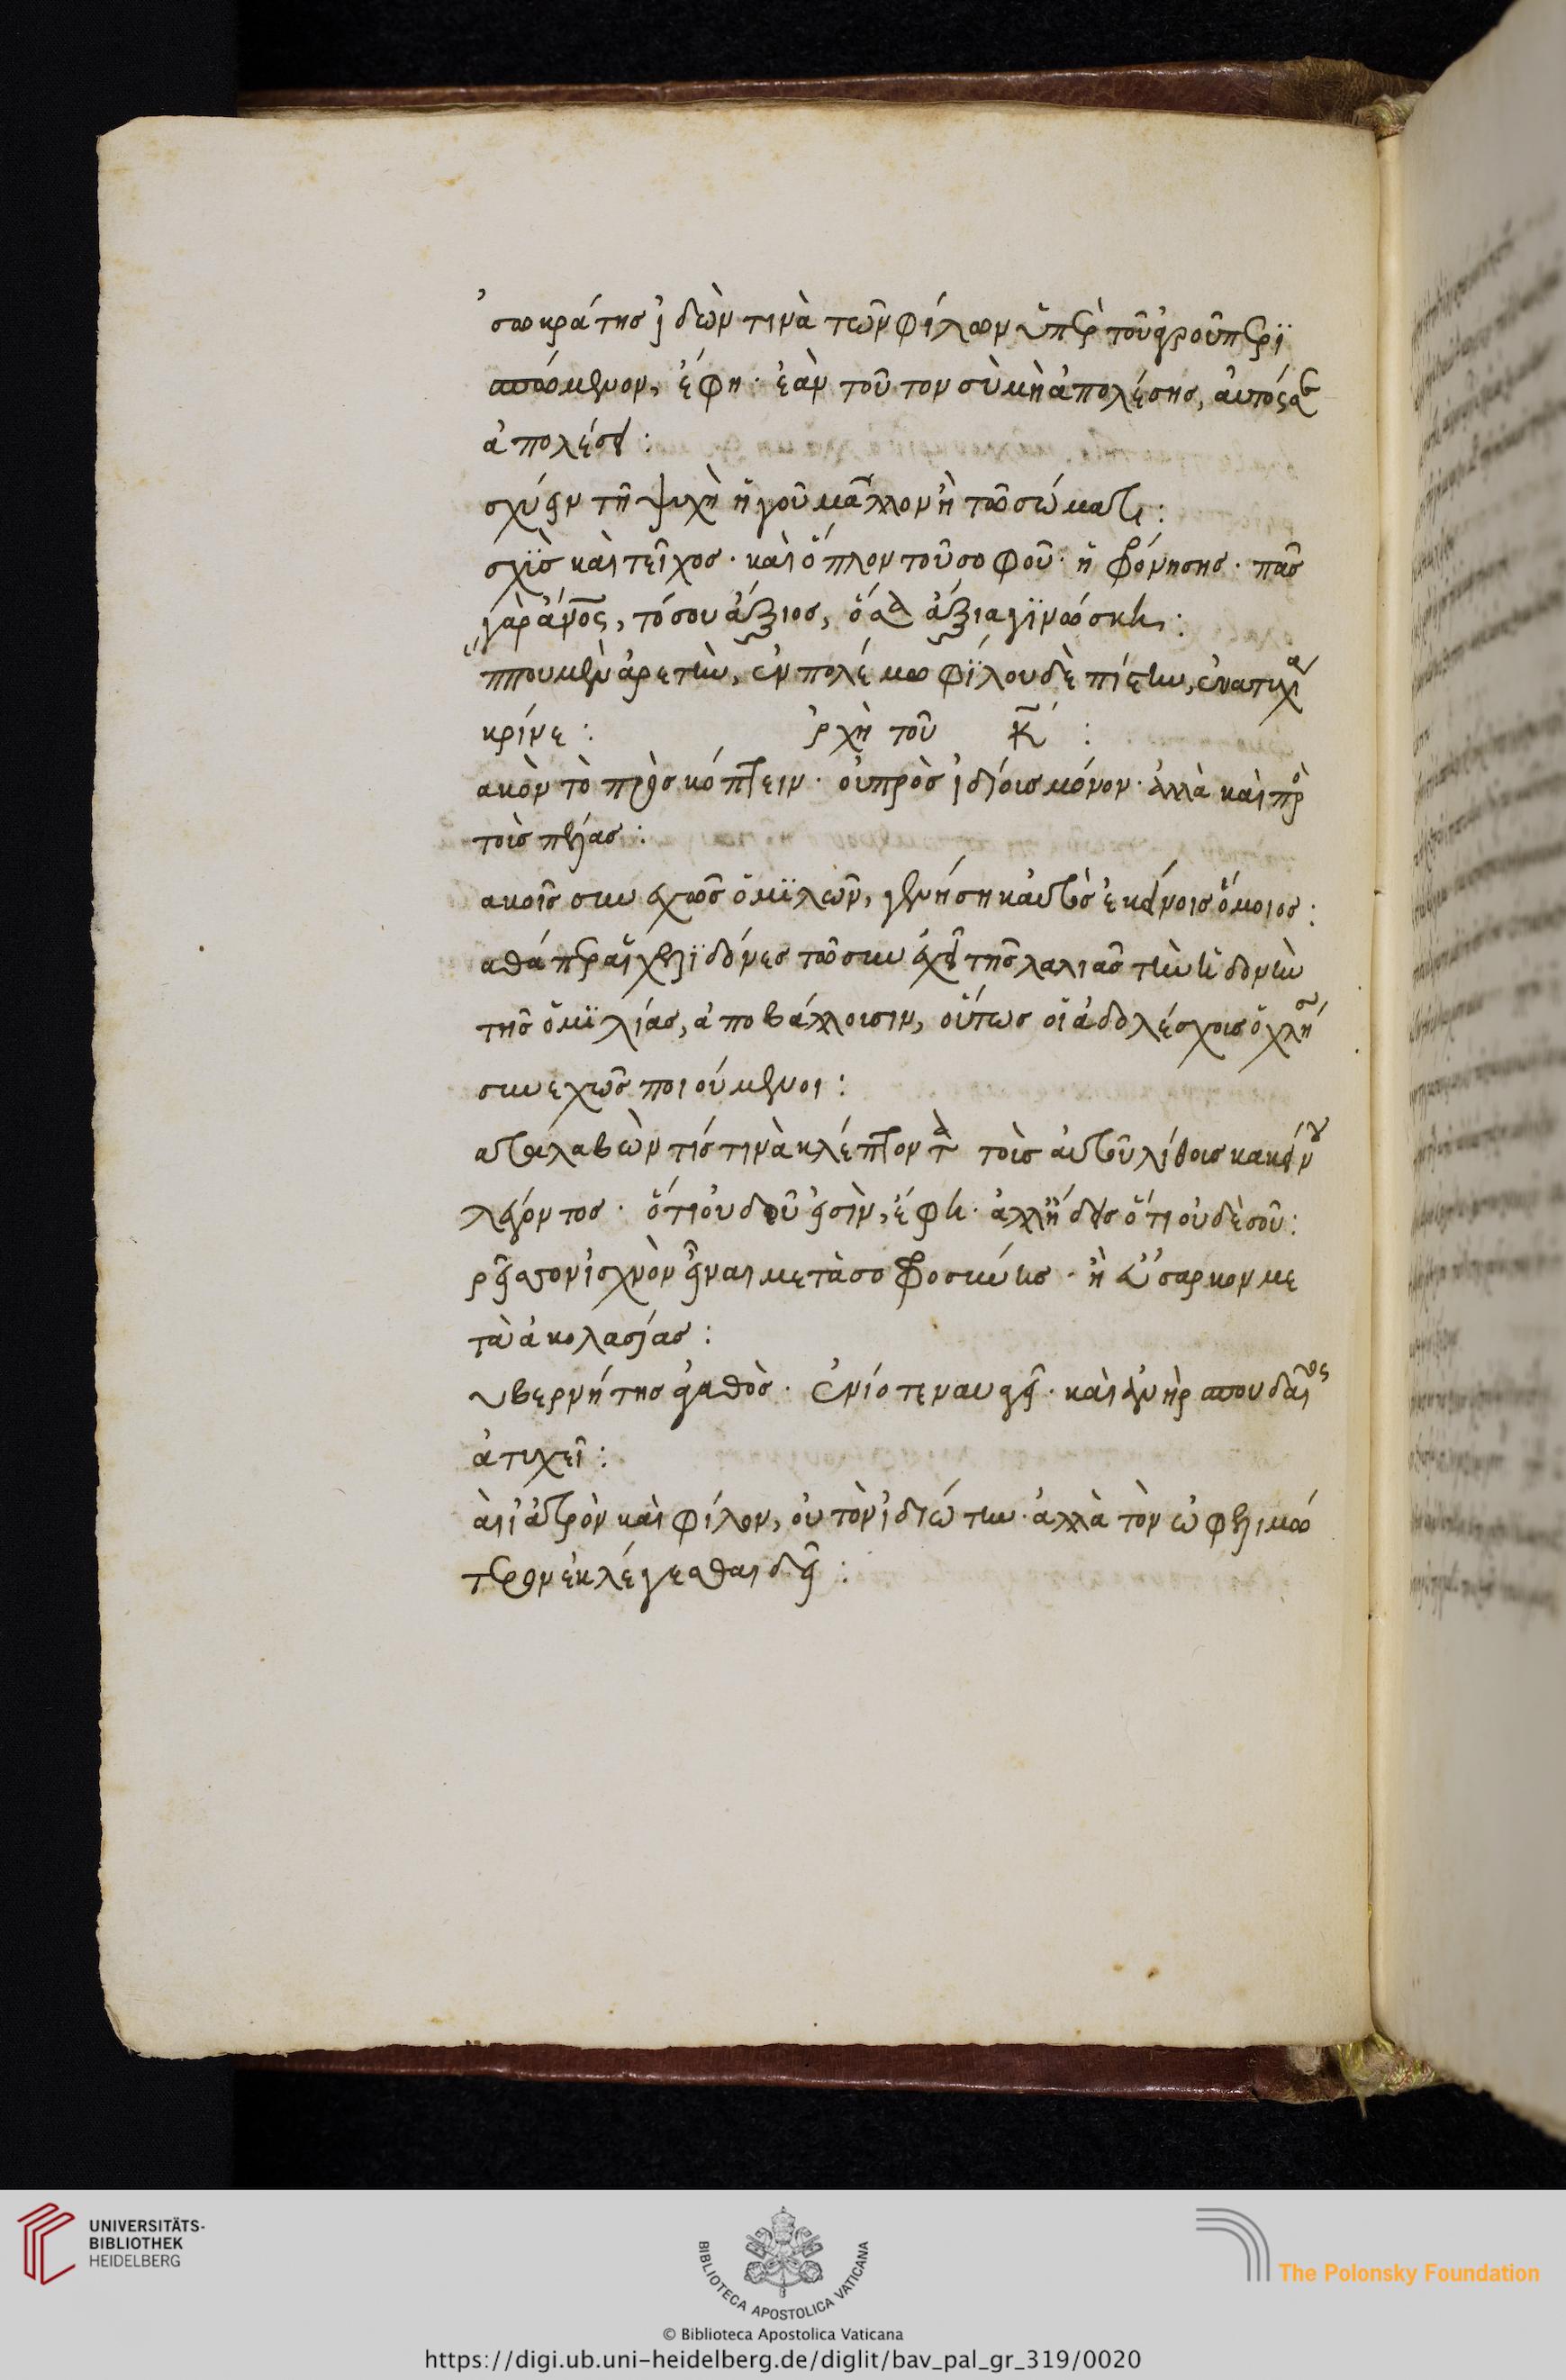 σωκράτης ἰδὼν τινὰ τῶν φίλων ὑπὲρ τοῦ ἀγροῦ περι
σπώμενον, ἔφη· ἐὰν τοῦτον σὺ μὴ ἀπολέσης, αὐτός σε
ἀπολέσει:
σχύειν τῆ ψυχῆ ἡγοῦ μᾶλλον ἢ τῶ σώματι:
σχὺς καὶ τεῖχος· καὶ ὅπλον τοῦ σοφοῦ· ἡ φρόνησης· πᾶς
γὰρ ἄνος, τόσου ἄξιος, ὅσα ἄξια γινώσκει:
ππου μὲν ἀρετὴν, ἐν πολέμω φίλου δὲ πίστιν, ἐν ἀτυχία
κρίνε: ρχὴ τοῦ κ:
ακὸν τὸ προσκόπτειν· οὐ πρὸς ἰδίοις μόνον· ἀλλὰ καὶ πρὸ
τοῖς πέλας:
ακοῖς συνεχῶς ὁμιλῶν, γενήση καὐτὸς ἐκείνοις ὅμοιος:
αθάπερ αἱ χελιδόνες τῶ συνεχεῖ τῆς λαλιᾶς τὴν ἡδονὴν
τῆς ὁμιλίας, ἀποβάλλουσιν, οὕτως οἱ ἀδολέσχοις ὀχλη
συνεχῶς ποιούμενοι:
αταλαβὼν τίς τινὰ κλέπτοντα τοῖς αὐτοῦ λίθοις κακείνου
λέγοντος· ὅτι οὐδοῦ εἰσὶν, ἔφη· ἀλλ' ἤδεις ὅτι οὐδὲ σοῦ:
ρεῖσσον ἰσχνὸν εἶναι μετὰ σοφροσύνης· ἢ εὔσαρκον με
τὰ ἀκολασίας:
υβερνήτης ἀγαθὸς· ἐνίοτε ναυαγεῖ· καὶ ἀνὴρ σπουδαῖος
ἀτυχεῖ:
αὶ ἰατρὸν καὶ φίλον, οὐ τὸν ἰδιώτην· ἀλλὰ τὸν ὠφελιμώ
τερον ἐκλέγεσθαι δεῖ:
UNIVERSITÄTS-
BIBLIOTHEK
HEIDELBERG
BIBLIOTECA APOSTOLICA VATICANA
The Polonsky Foundation
© Biblioteca Apostolica Vaticana
https://digi.ub.uni-heidelberg.de/diglit/bav_pal_gr_319/0020